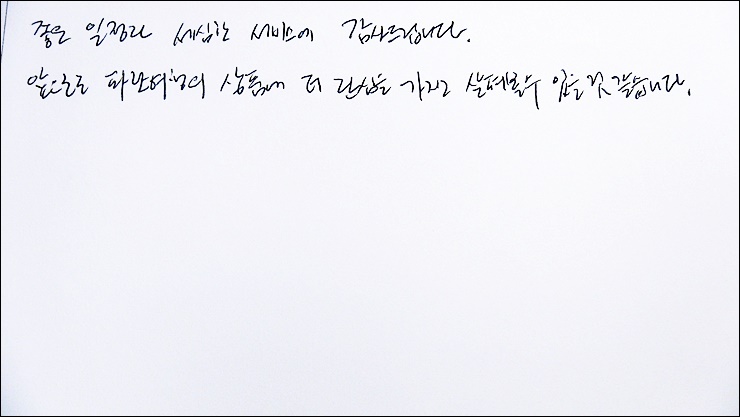 좋은 일정과 세심한 서비스에 감사드립니다.
앞으로도 파란여행의 상품에 더 관심을 가지고 살펴볼 수 있을 것 같습니다.